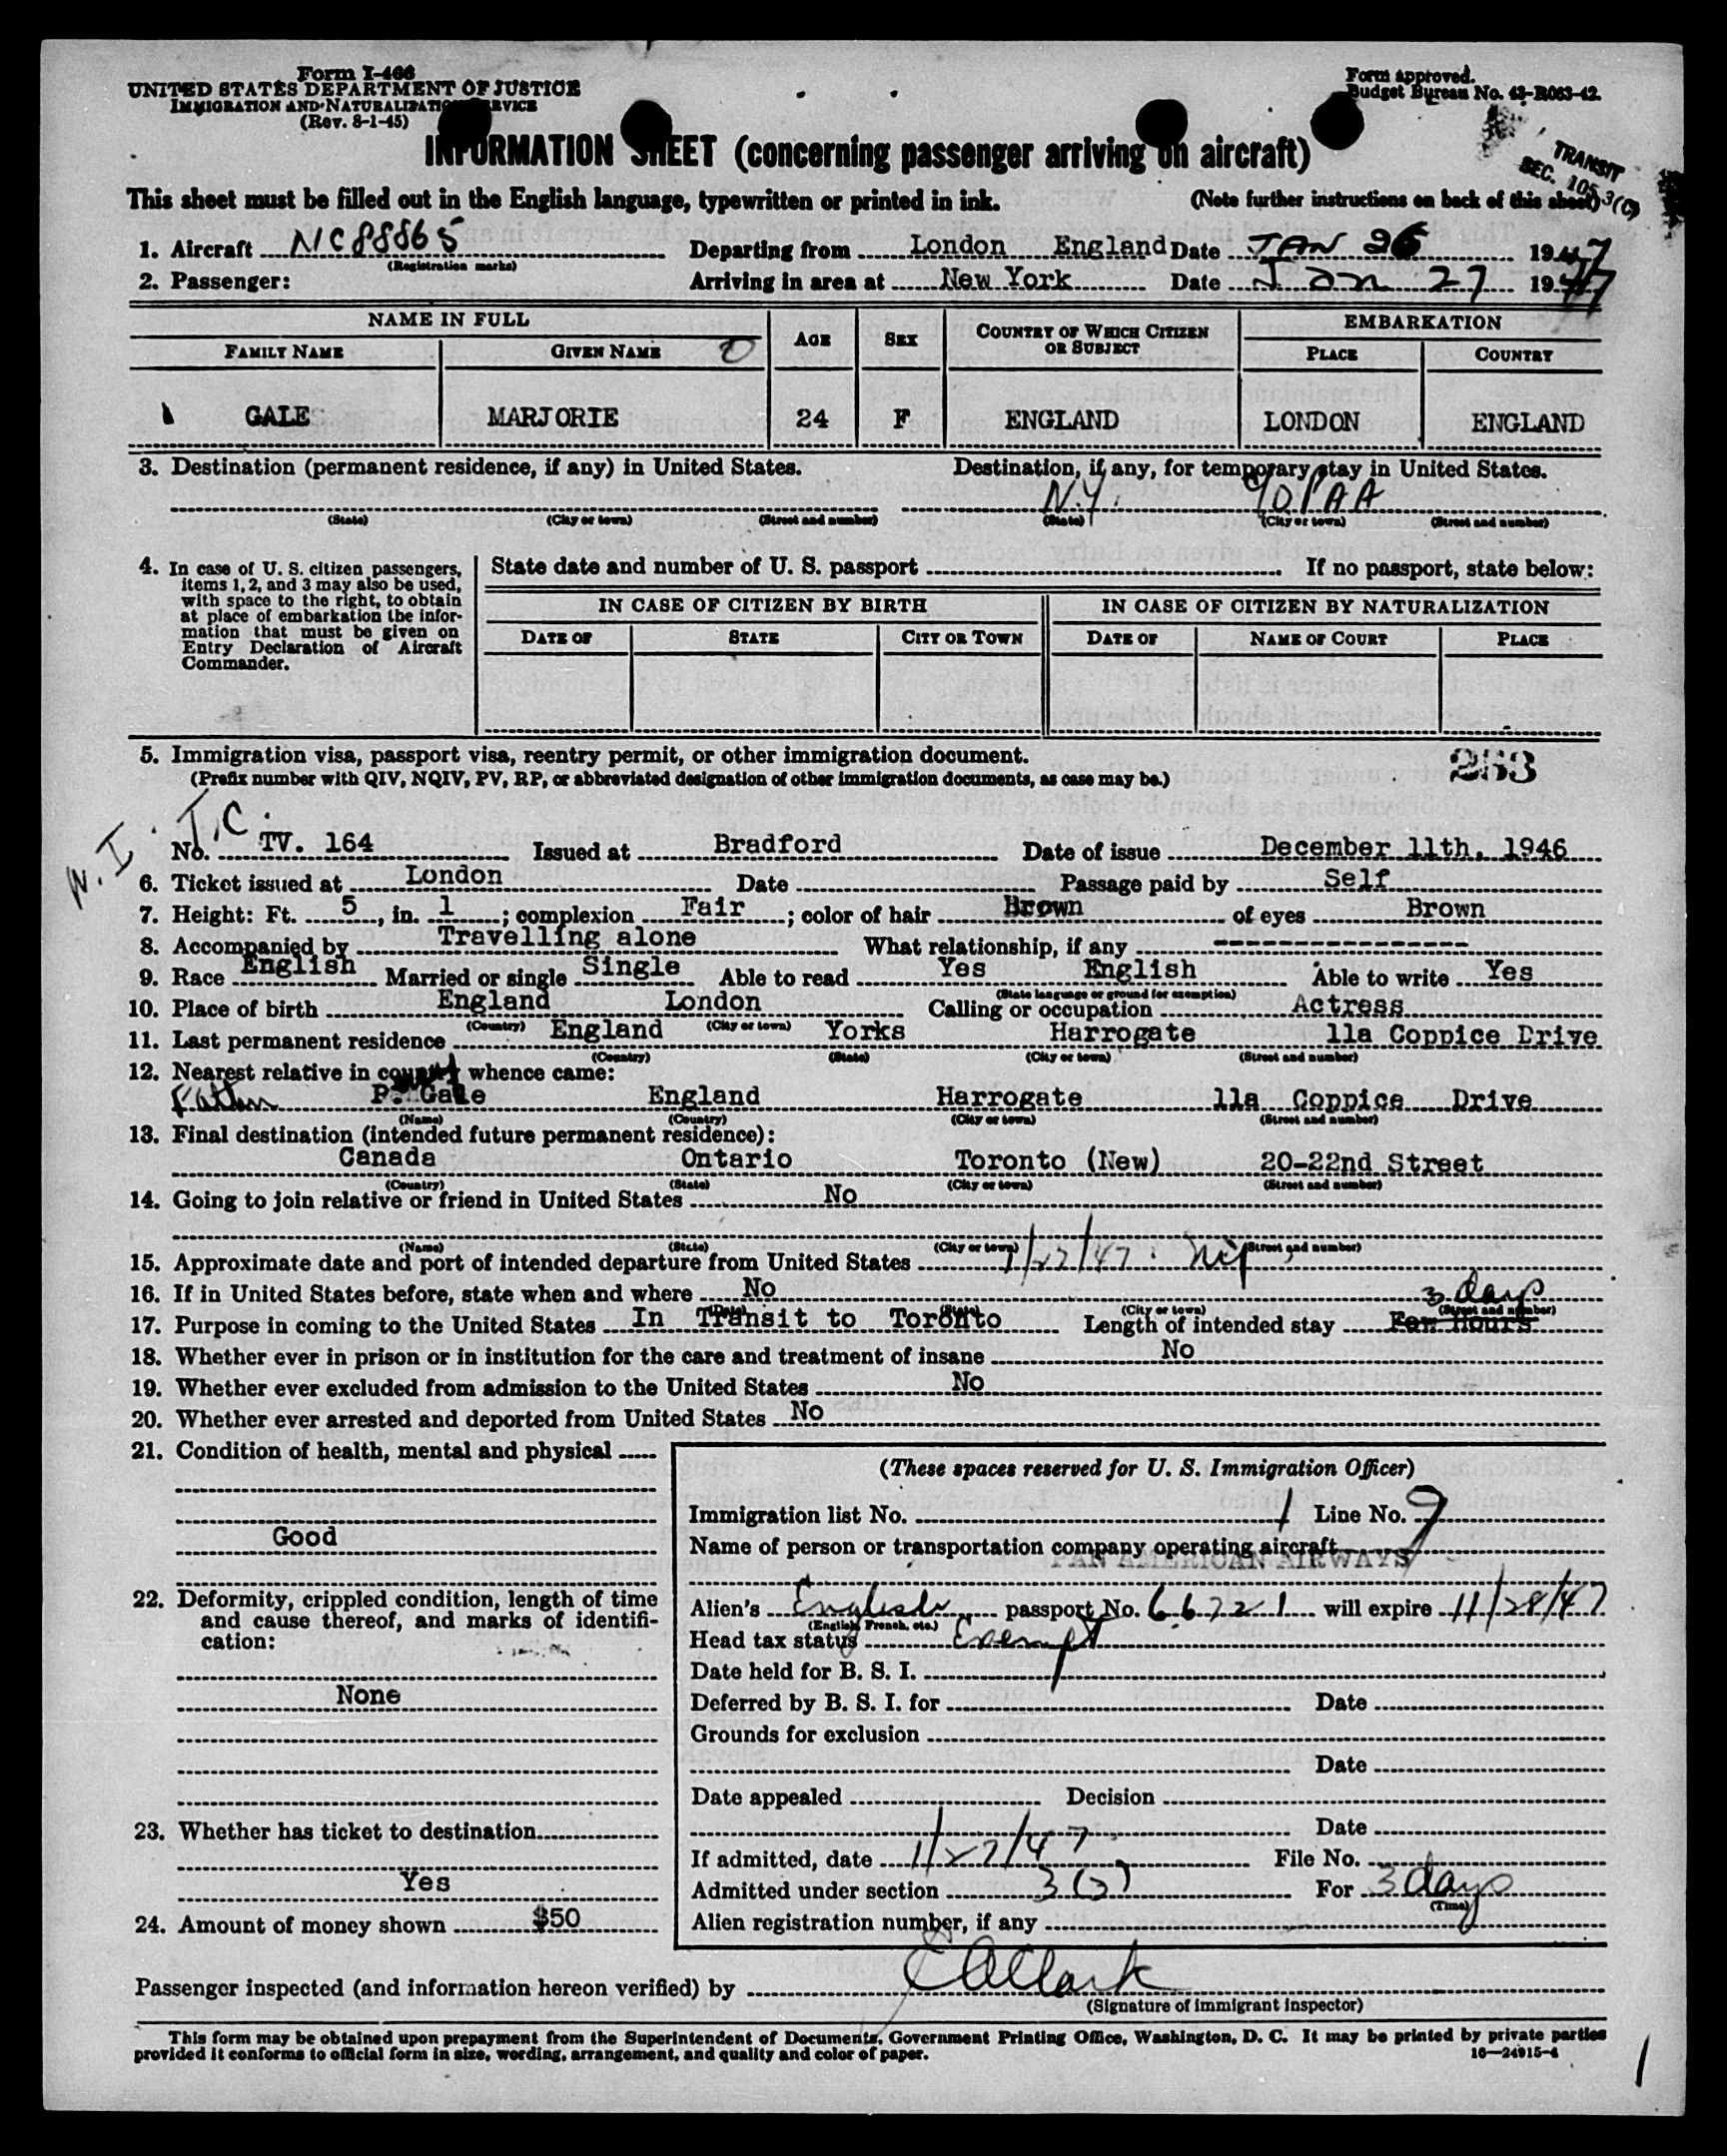 Form I-466
UNITED STATES DEPARTMENT OF JUSTICE
IMMIGRATION AND NATURALIZATION SERVICE
(Rev. 8-1-45)
Form approved.
Budget Bureau No. 43-R063-42.
INFORMATION SHEET (concerning passenger arriving on aircraft)
TRANSIT
SEC. 105.3(C)
This sheet must be filled out in the English language, typewritten or printed in ink. (Note further instructions on back of this sheet)
1. Aircraft NC88865 Departing from London England Date JAN 26 1947
(Registration marks)
2. Passenger: Arriving in area at New York Date Jan 27 1947
NAME IN FULL AGE SEX COUNTRY OF WHICH CITIZEN OR SUBJECT EMBARKATION
FAMILY NAME GIVEN NAME PLACE COUNTRY
GALE MARJORIE 24 F ENGLAND LONDON ENGLAND
3. Destination (permanent residence, if any) in United States. Destination, if any, for temporary stay in United States.
N.Y. PAA
(State) (City or town) (Street and number) (State) (City or town) (Street and number)
4. In case of U. S. citizen passengers, items 1, 2, and 3 may also be used, with space to the right, to obtain at place of embarkation the information that must be given on Entry Declaration of Aircraft Commander.
State date and number of U. S. passport If no passport, state below:
IN CASE OF CITIZEN BY BIRTH IN CASE OF CITIZEN BY NATURALIZATION
DATE OF STATE CITY OR TOWN DATE OF NAME OF COURT PLACE
5. Immigration visa, passport visa, reentry permit, or other immigration document. 263
(Prefix number with QIV, NQIV, PV, RP, or abbreviated designation of other immigration documents, as case may be.)
W.I. T.C.
No. TV. 164 Issued at Bradford Date of issue December 11th, 1946
6. Ticket issued at London Date Passage paid by Self
7. Height: Ft. 5, in. 1; complexion Fair; color of hair Brown of eyes Brown
8. Accompanied by Travelling alone What relationship, if any ----------------
9. Race English Married or single Single Able to read Yes English Able to write Yes
(State language or ground for exemption)
10. Place of birth England London Calling or occupation Actress
(Country) (City or town)
11. Last permanent residence England Yorks Harrogate 11a Coppice Drive
(Country) (State) (City or town) (Street and number)
12. Nearest relative in country whence came:
Father P. Gale England Harrogate 11a Coppice Drive
(Name) (Country) (City or town) (Street and number)
13. Final destination (intended future permanent residence):
Canada Ontario Toronto (New) 20-22nd Street
(Country) (State) (City or town) (Street and number)
14. Going to join relative or friend in United States No
(Name) (State) (City or town) (Street and number)
15. Approximate date and port of intended departure from United States 1/27/47
16. If in United States before, state when and where No
(Date) (State) (City or town) (Street and number)
3 days
17. Purpose in coming to the United States In Transit to Toronto Length of intended stay Few Hours
18. Whether ever in prison or in institution for the care and treatment of insane No
19. Whether ever excluded from admission to the United States No
20. Whether ever arrested and deported from United States No
21. Condition of health, mental and physical
Good
22. Deformity, crippled condition, length of time and cause thereof, and marks of identification:
None
23. Whether has ticket to destination
Yes
24. Amount of money shown $50
(These spaces reserved for U. S. Immigration Officer)
Immigration list No. 1 Line No. 9
Name of person or transportation company operating aircraft
PAN AMERICAN AIRWAYS
Alien's English passport No. 66721 will expire 11/28/47
(English, French, etc.)
Head tax status Exempt
Date held for B. S. I.
Deferred by B. S. I. for Date
Grounds for exclusion
Date
Date appealed Decision
Date
If admitted, date 1/27/47 File No.
Admitted under section 3(3) For 3 days
(Time)
Alien registration number, if any
Passenger inspected (and information hereon verified) by E A Clark
(Signature of immigrant inspector)
This form may be obtained upon prepayment from the Superintendent of Documents, Government Printing Office, Washington, D. C. It may be printed by private parties
provided it conforms to official form in size, wording, arrangement, and quality and color of paper. 16—24915-4